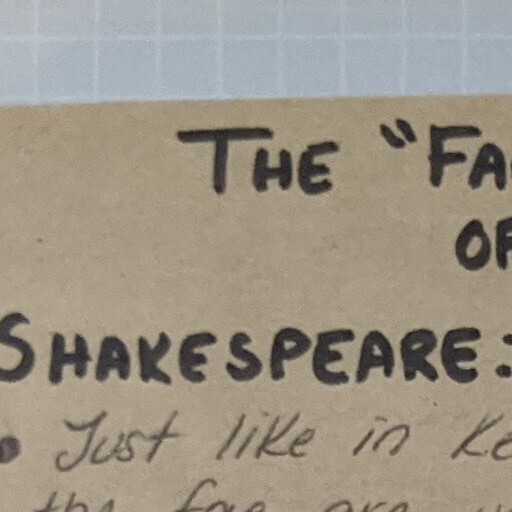 THE "FA
OF
SHAKESPEARE:
• Just like in Ke
the fae are